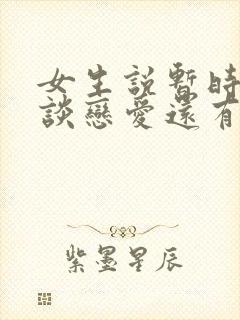 女生説暫時
談戀愛還有
紫墨星辰